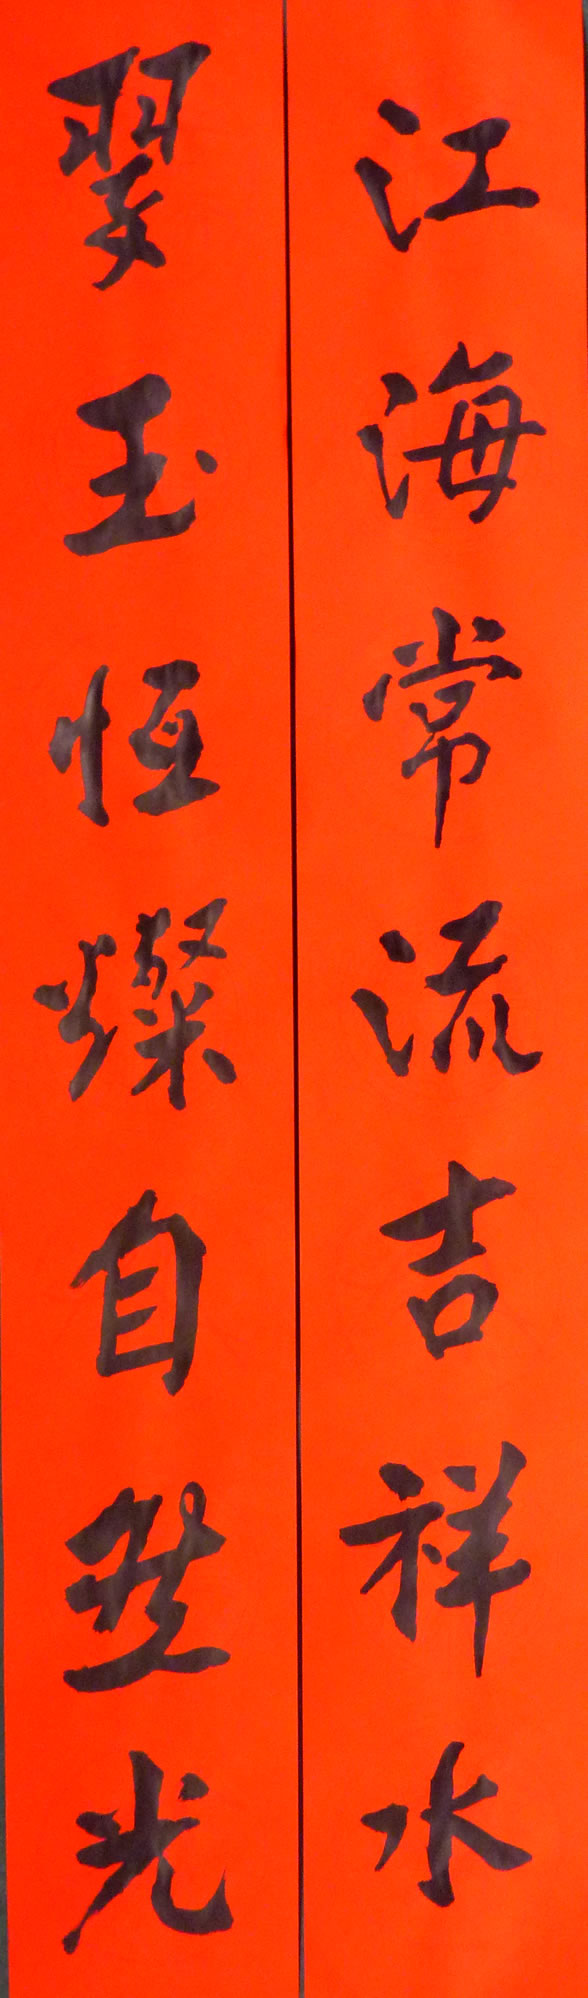 江海常流吉祥水
翠玉恆燦自然光